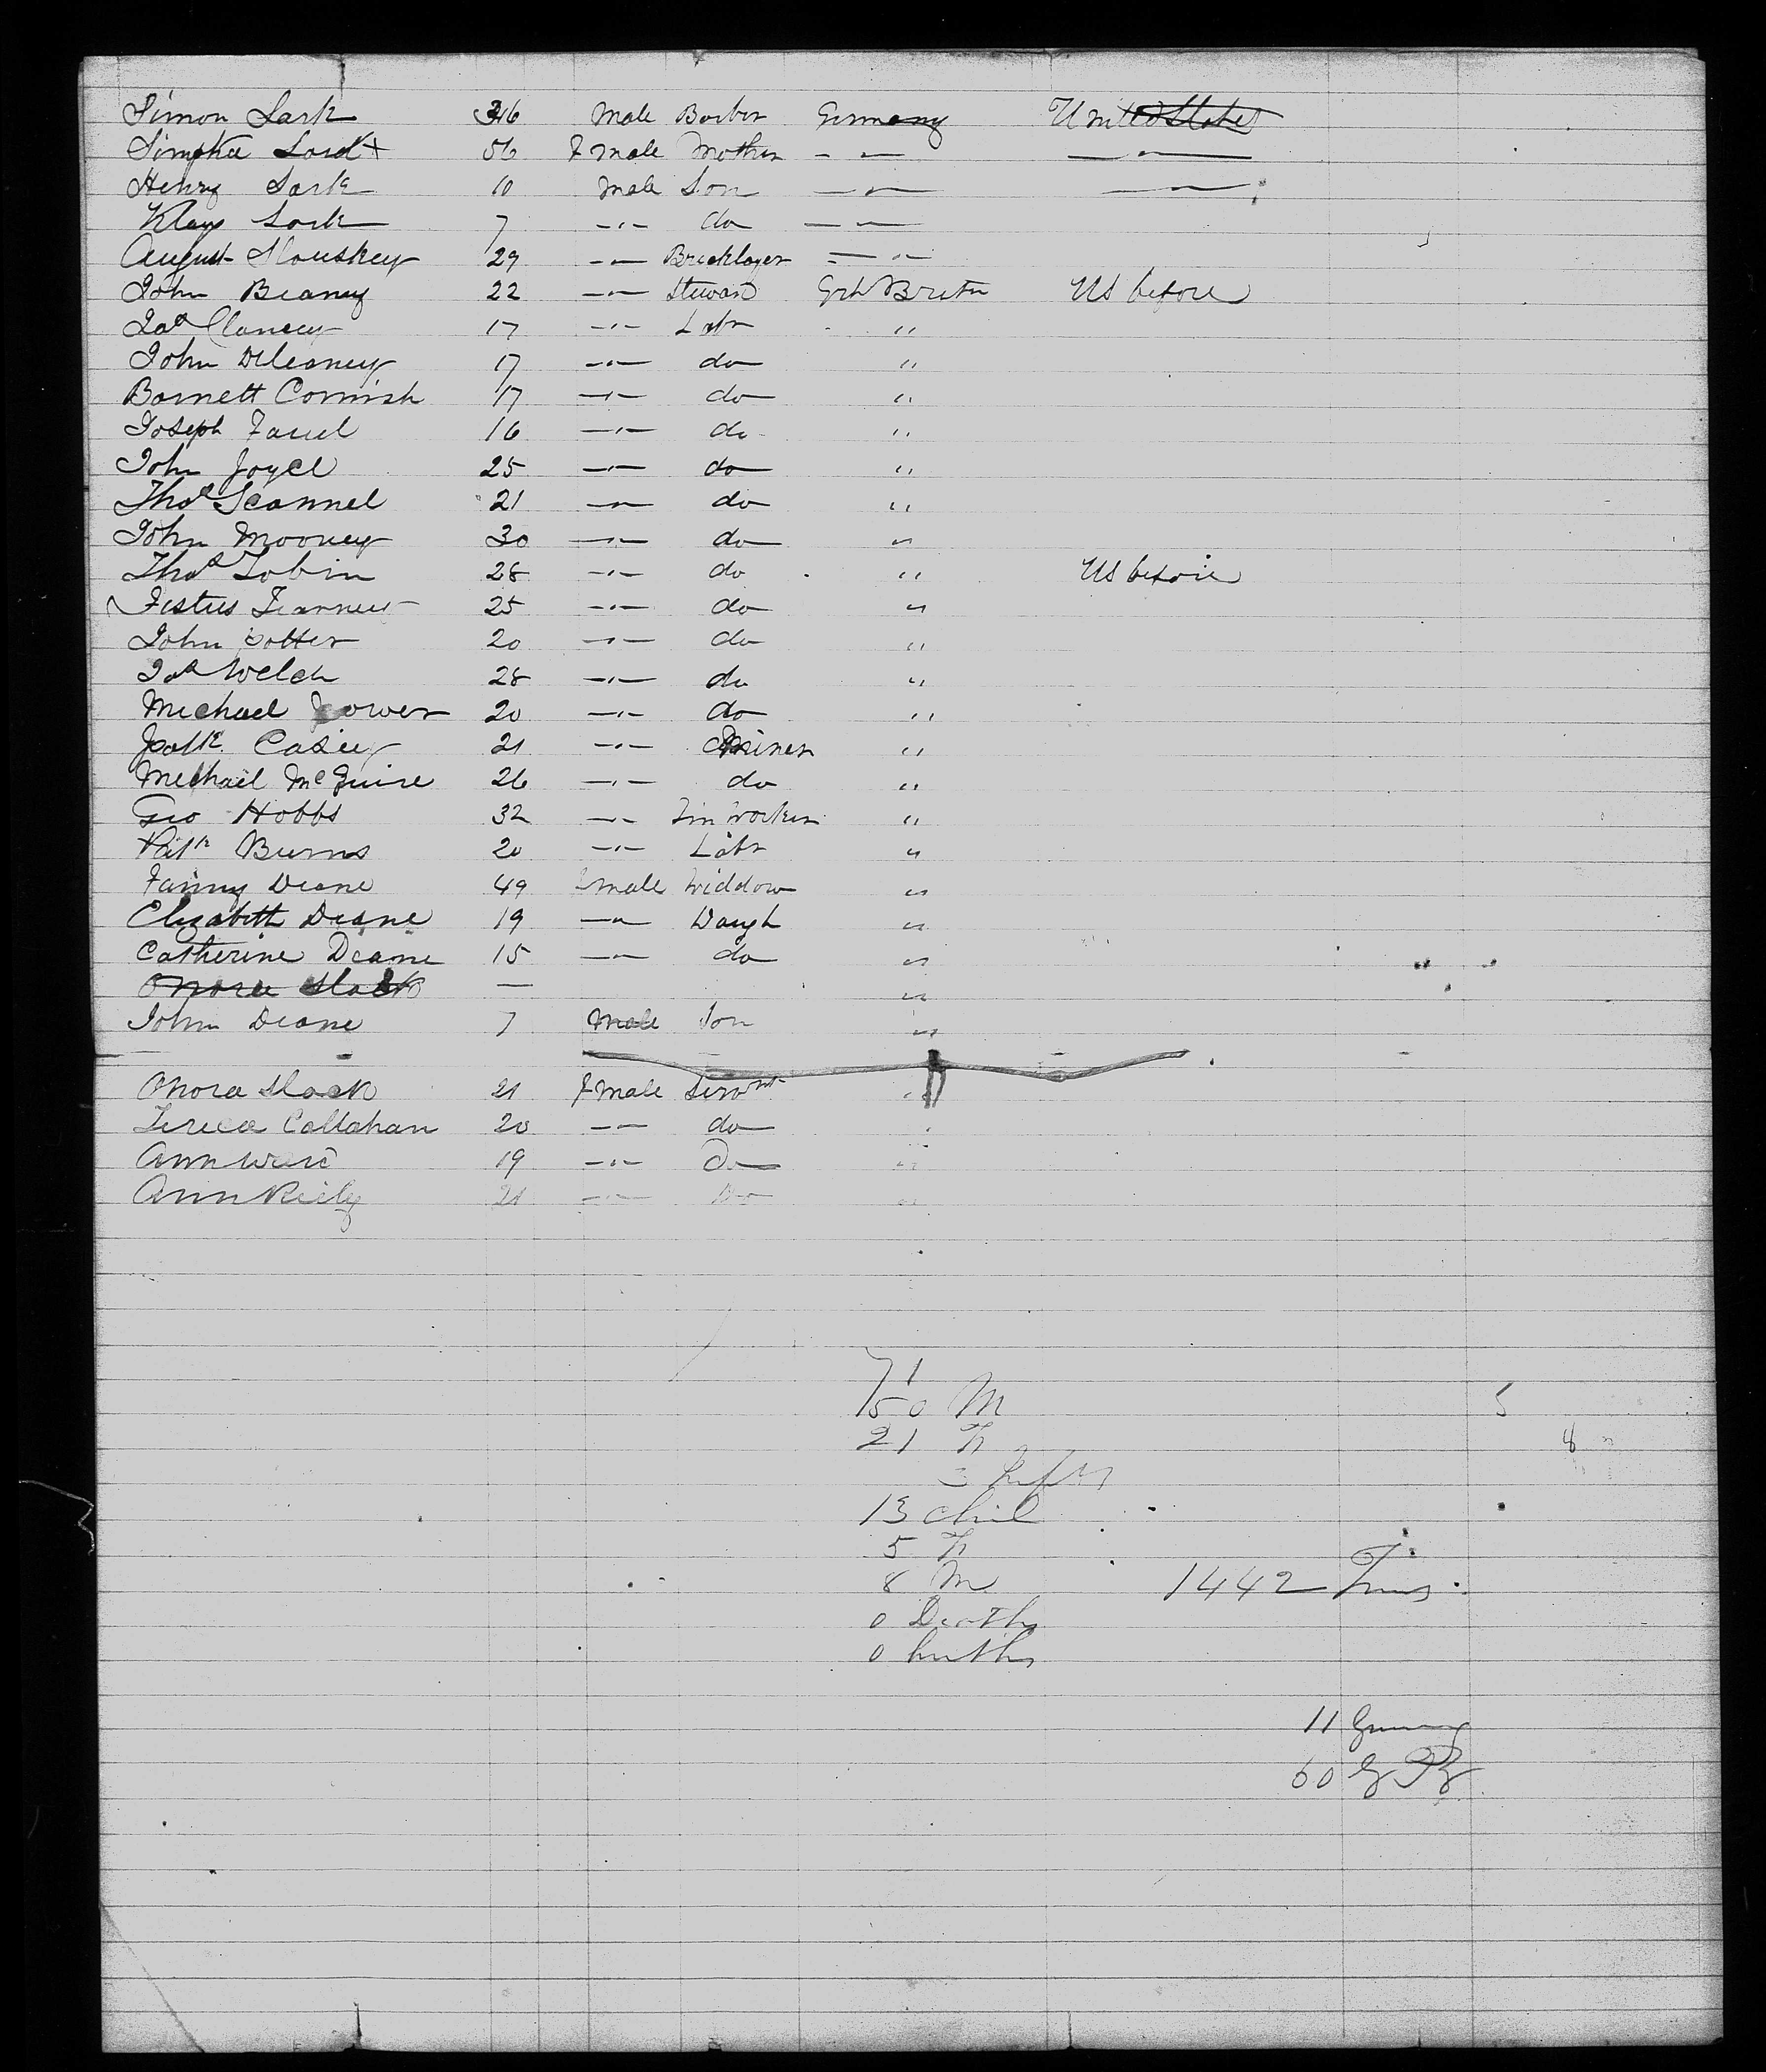 Simon Sark 36 Male Barber Germany United States
Simpka Sark + 56 Fmale Mother - " - — " —
Henry Sark 10 Male Son — " — — " —
Klays Sark 7 - " - do — " —
August Slouskey 29 - " - Bricklayer — " —
John Beaney 22 - " - Steward Grt Britn US before
Jas Clancey 17 - " - Labr "
John Deleaney 17 - " - do "
Barnett Cornish 17 - " - do "
Joseph 16 - " - do "
John Joyce 25 - " - do "
Thos Scannel 21 - " - do "
John Mooney 30 - " - do "
Thos Tobin 28 - " - do " US before
Festus 25 - " - do "
John Potter 20 - " - do "
Jas Welch 28 - " - do "
Michael Power 20 - " - do "
Patk Casey 21 - " - Miner "
Michail McGuire 26 - " - do "
Geo Hobbs 32 - " - Tin Worker "
Patk Burns 20 - " - Labr "
Fanny Deane 49 Fmale Widdow "
Elizabeth Deane 19 - " - Daugh "
Catherine Deane 15 - " - do "
Onora Slack — "
John Deane 7 Male Son "
Onora Slack 21 Fmale Servnt "
Teresa Callahan 20 - " - do "
Ann Ward 19 - " - Do "
Ann Riely 21 - " - Do "
71
50 M
21 F
3 Infts
13 Chil
5 F
8 M 1442 Tons
0 Deaths
0 births
11 Germany
60 G